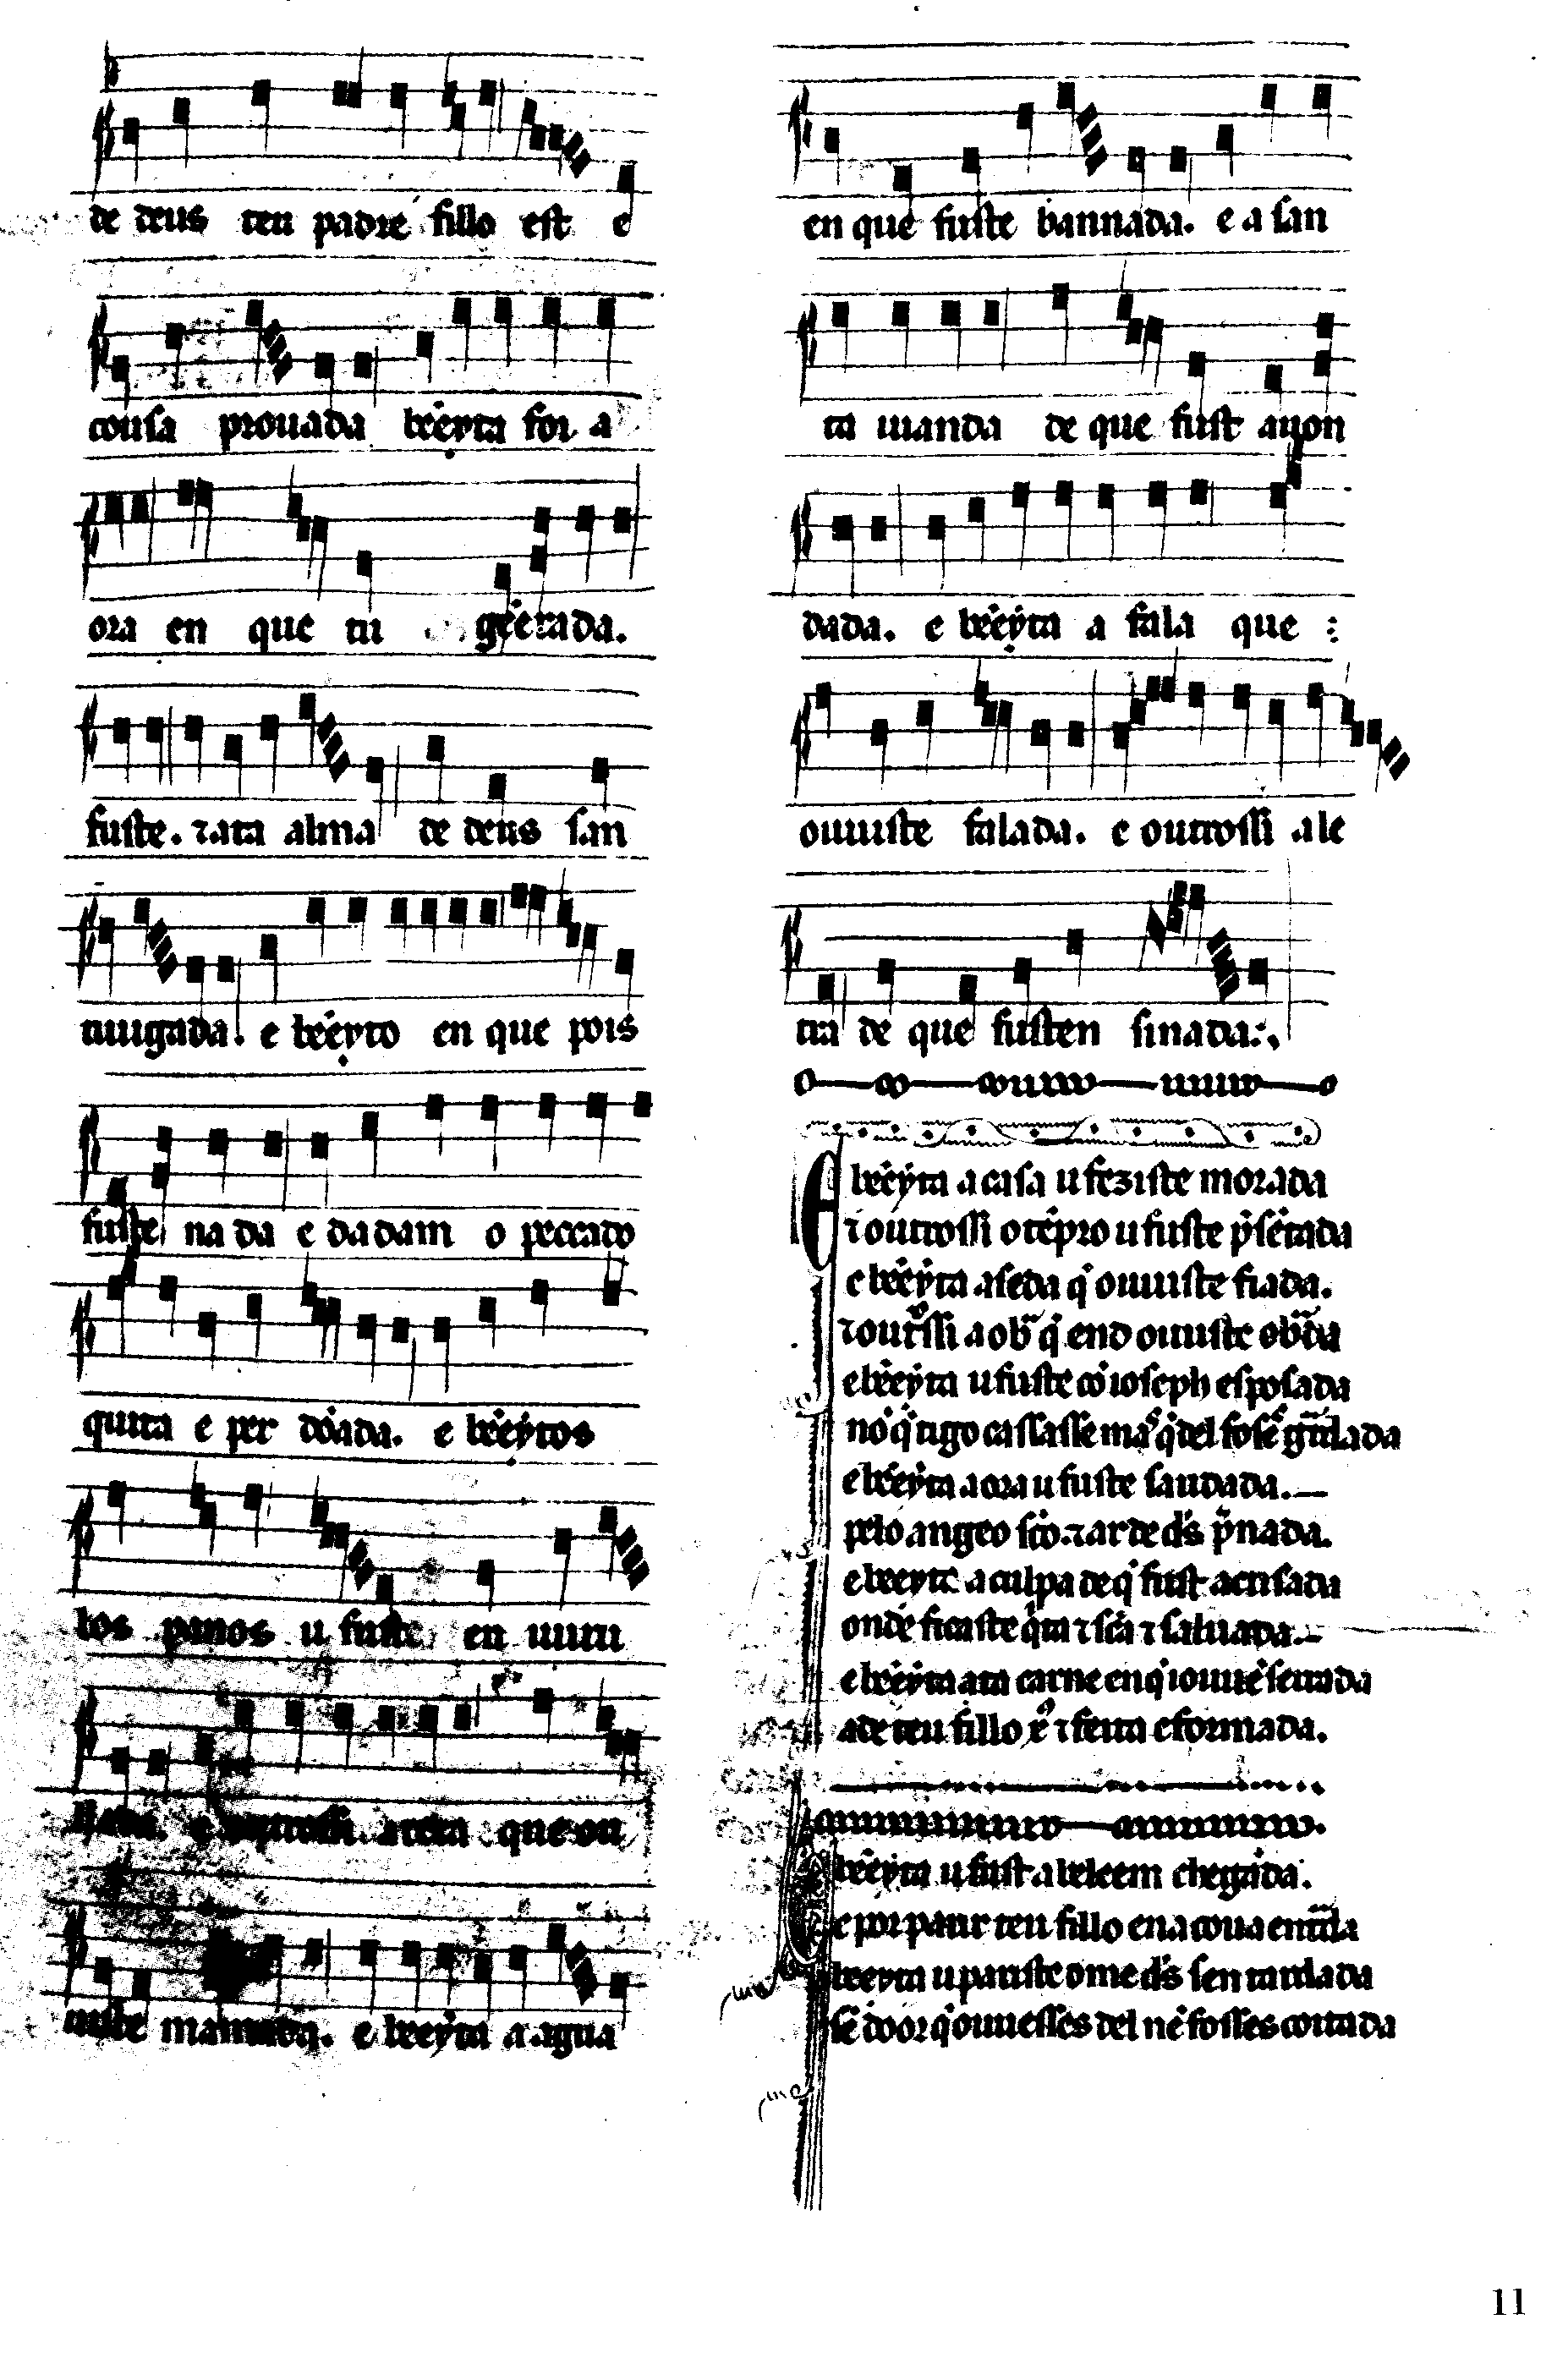 de deus teu padre fillo est e
cousa prouada bẽeyta foi a
ora en que tu gẽerada.
fuste. ⁊ a ta alma de deus san
tiuigada. e bẽeyto en que pois
fuste na da e dadam o peccado
quita e per dõada. e bẽeytos
los panos u fuste en uuru
que ou
uiste mamada. e bẽeyta a agua
en que fuste bannada. e a san
ta uianda de que fust auon
dada. e bẽeyta a fala que :
ouuiste falada. e outrossi a le
tra de que fusten sinada:.
E bẽeyta a casa u feziste morada
⁊ outrossi o tẽpro u fuste p̃sẽtada
e bẽeyta a seda q̇ ouuiste fiada.
⁊ outͦssi a ob̃ q̇ end ouuiste ob̃da
e bẽeyta u fuste cõ ioseph esposada
nõ q̇ tigo casasse mas q̇ del fosses g̃dada
e bẽeyta a ora u fuste saudada.—
pelo angeo sc̃o. ⁊ ar de d̃s p̃nada.
e beeyta a culpa de q̇ fust acusada
onde ficaste q̇ta ⁊ sc̃a ⁊ saluada.—
e bẽeyta a ta carne en q̇ iouuẽ serrada
a de teu fillo ⁊ feita e formada.
E bẽeyta u fust a beleem chegada.
e por parir teu fillo ena coua ent̃da
beeyta u pariste ome d̃s sen tardada
sẽ door q̇ ouuesses del nẽ fosses coitada
11